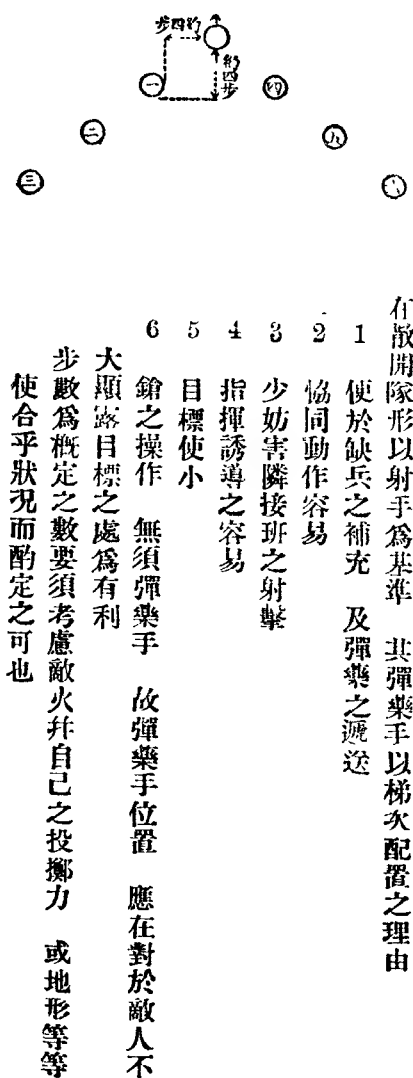 約四步
約四步
一
二
三
四
五
六
在散開隊形以射手爲基準　其彈藥手以梯次配置之理由
1　便於缺兵之補充　及彈藥之遞送
2　恊同動作容易
3　少妨害隣接班之射擊
4　指揮誘導之容易
5　目標使小
6　鎗之操作　無須彈藥手　故彈藥手位置　應在對於敵人不
大顯露目標之處爲有利
步數爲概定之數要須考慮敵火幷自己之投擲力　或地形等等
使合乎狀況而酌定之可也